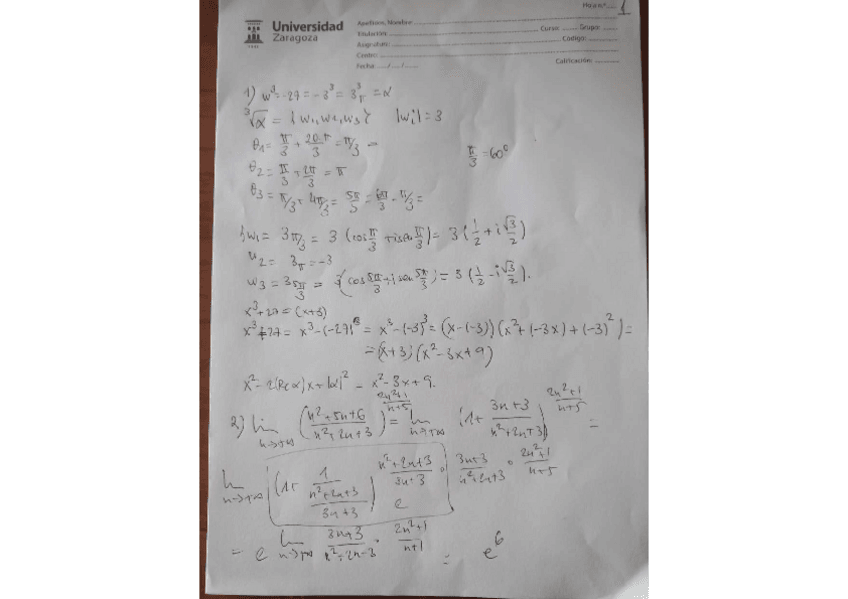 Hoja nº ...... 1
Universidad
Zaragoza
1542
Apellidos, Nombre:
Titulación: Curso: Grupo:
Asignatura: Código:
Centro:
Fecha: ..... / ..... / ..... Calificación:
1) w³ = -27 = -3³ = 3³_π = α
³√α = {w₁, w₂, w₃} |wi| = 3
θ₁ = π/3 + 2·0·π/3 = π/3 =
π/3 = 60º
θ₂ = π/3 + 2π/3 = π
θ₃ = π/3 + 4π/3 = 5π/3 = 6π/3 - π/3 =
w₁ = 3_π/3 = 3 (cos π/3 + i sen π/3) = 3 (1/2 + i √3/2)
w₂ = 3_π = -3
w₃ = 3_5π/3 = 3 (cos 5π/3 + i sen 5π/3) = 3 (1/2 - i √3/2).
x³ + 27 = (x+3)
x³ + 27 = x³ - (-27) = x³ - (-3)³ = (x - (-3)) (x² + (-3x) + (-3)²) =
= (x+3) (x² - 3x + 9)
x² - 2(Re α) x + |α|² = x² - 3x + 9.
2) lim n→+∞ ((n²+5n+6)/(n²+2n+3))^((2n²+1)/(n+5)) = lim n→+∞ (1 + (3n+3)/(n²+2n+3))^((2n²+1)/(n+5)) =
lim n→+∞ [(1 + 1/((n²+2n+3)/(3n+3)))^((n²+2n+3)/(3n+3)) e]^((3n+3)/(n²+2n+3) · (2n²+1)/(n+5))
= e^(lim n→+∞ (3n+3)/(n²+2n-3) · (2n²+1)/(n+1)) = e⁶